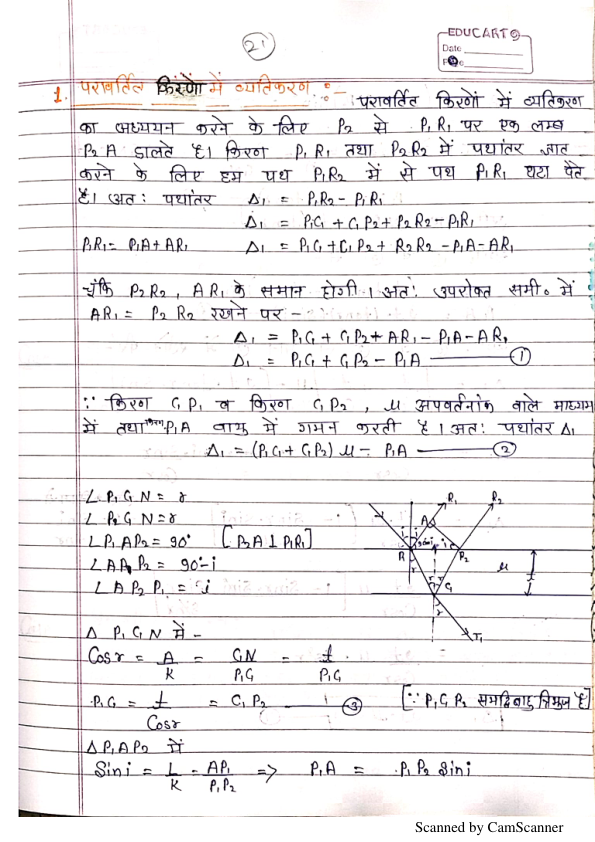 21
EDUCART
Date
Page
1. परावर्तित किरणों में व्यतिकरण :-
परावर्तित किरणों में व्यतिकरण
का अध्ययन करने के लिए P₂ से P₁R₁ पर एक लम्ब
P₂A डालते है। किरण P₁R₁ तथा P₂R₂ में पथांतर ज्ञात
करने के लिए हम पथ P₁R₂ में से पथ P₁R₁ घटा देते
है। अतः पथांतर Δ₁ = P₁R₂ - P₁R₁
Δ₁ = P₁G + G P₂ + P₂R₂ - P₁R₁
P₁R₁ = P₁A + AR₁ Δ₁ = P₁G + G P₂ + R₂R₂ - P₁A - AR₁
चूंकि P₂R₂, AR₁ के समान होगी। अतः उपरोक्त समी॰ में
AR₁ = P₂R₂ रखने पर -
Δ₁ = P₁G + GP₂ + AR₁ - P₁A - AR₁
Δ₁ = P₁G + GP₂ - P₁A ——— ①
∵ किरण GP₁ व किरण GP₂, μ अपवर्तनांक वाले माध्यम
में तथा किरण P₁A वायु में गमन करती है। अतः पथांतर Δ₁
Δ₁ = (P₁G + GP₂) μ - P₁A ——— ②
∠P₁GN = r
∠P₂GN = r
∠P₁AP₂ = 90° [P₂A ⊥ P₁R₁]
∠AP₁P₂ = 90°-i
∠AP₂P₁ = i
R₁ R₂
A
i i 90-i i
P₂
R
r
μ
t
r r
G
r
T₁
Δ P₁GN में -
Cosr = A/K = GN/P₁G = t/P₁G
P₁G = t/Cosr = GP₂ ——— ③ [∵ P₁GP₂ समद्विबाहु त्रिभुज है]
ΔP₁AP₂ में
Sini = L/K = AP₁/P₁P₂ => P₁A = P₁P₂ Sini
Scanned by CamScanner